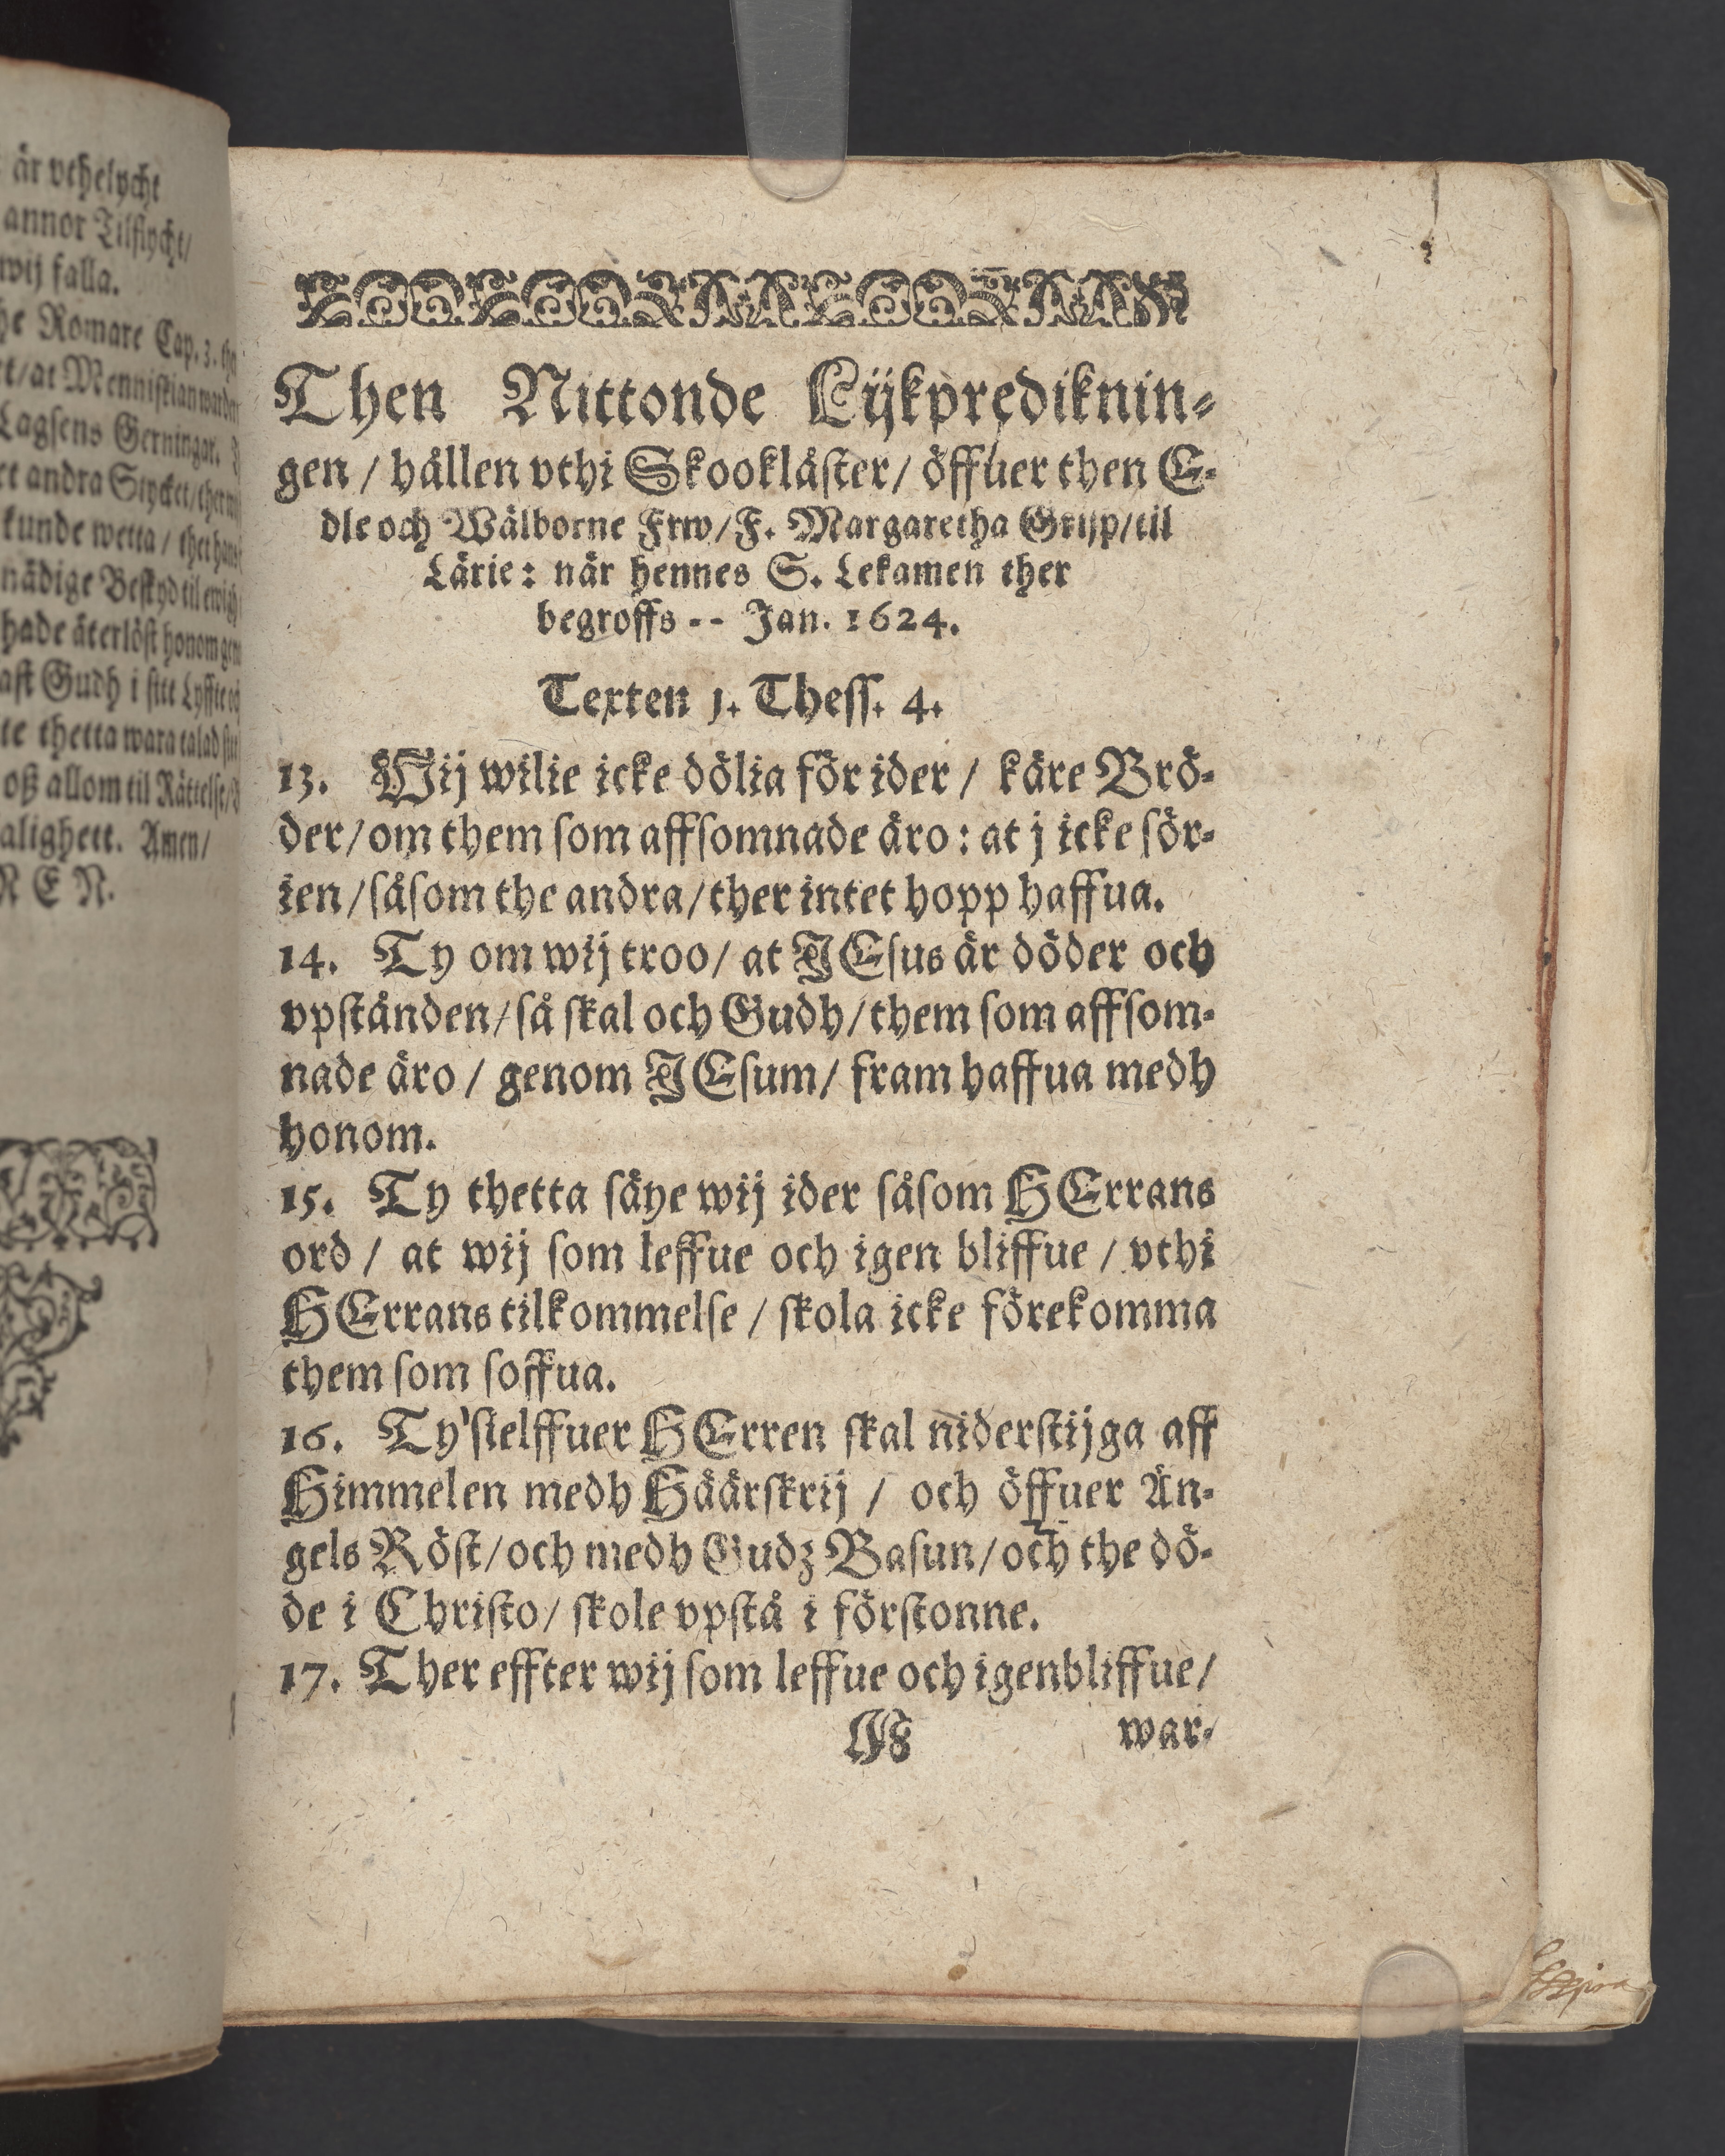 är vthelycht
annor Tilflycht/
wij falla.
Romare Cap. 3.
at Menniskian
Lagsens Gerningar.
andra Stycket/
kunde wetta / thet hans
nådige Beskyd til ewigh
hade återlöst honom
Gudh i sitt
thetta wara talad
oß allom til Rättelse/
alighett. Amen/
Then Nittonde Lijkprediknin-
gen / hållen vthi Skooklåster / öffuer then E-
dle och Wälborne Frw / F. Margaretha Grijp / til
Lärie: när hennes S. Lekamen ther
begroffs -- Jan. 1624.
Texten j. Thess. 4.
13. Wij wilie icke dölia för ider / käre Brö-
der / om them som affsomnade äro : at j icke sör-
ien / såsom the andra / ther intet hopp haffua.
14. Ty om wij troo / at JEsus är döder och
vpstånden / så skal och Gudh / them som affsom-
nade äro / genom JEsum / fram haffua medh
honom.
15. Ty thetta säye wij ider såsom HErrans
ord / at wij som leffue och igen bliffue / vthi
HErrans tilkommelse / skola icke förekomma
them som soffua.
16. Ty sielffuer HErren skal niderstijga aff
Himmelen medh Häärskrij / och öffuer Än-
gels Röst / och medh Gudz Basun / och the dö-
de i Christo / skole vpstå i förstonne.
17. Ther effter wij som leffue och igenbliffue /
war-